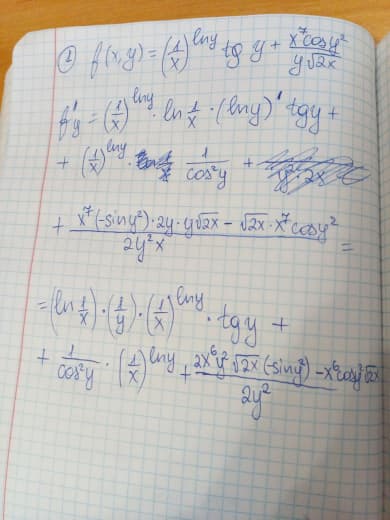 ② f(x,y) = (1/x)^lny tg y + x⁷cosy²/y√2x
f'y = (1/x)^lny · ln 1/x · (lny)' tgy +
+ (1/x)^lny 1/cos²y +
+ x⁷(-siny²)·2y·y√2x - √2x·x⁷cosy²/2y²x =
= (ln 1/x)·(1/y)·(1/x)^lny · tgy +
+ 1/cos²y · (1/x)^lny + 2x⁶y²√2x(-siny²) - x⁶cosy²√2x/2y²